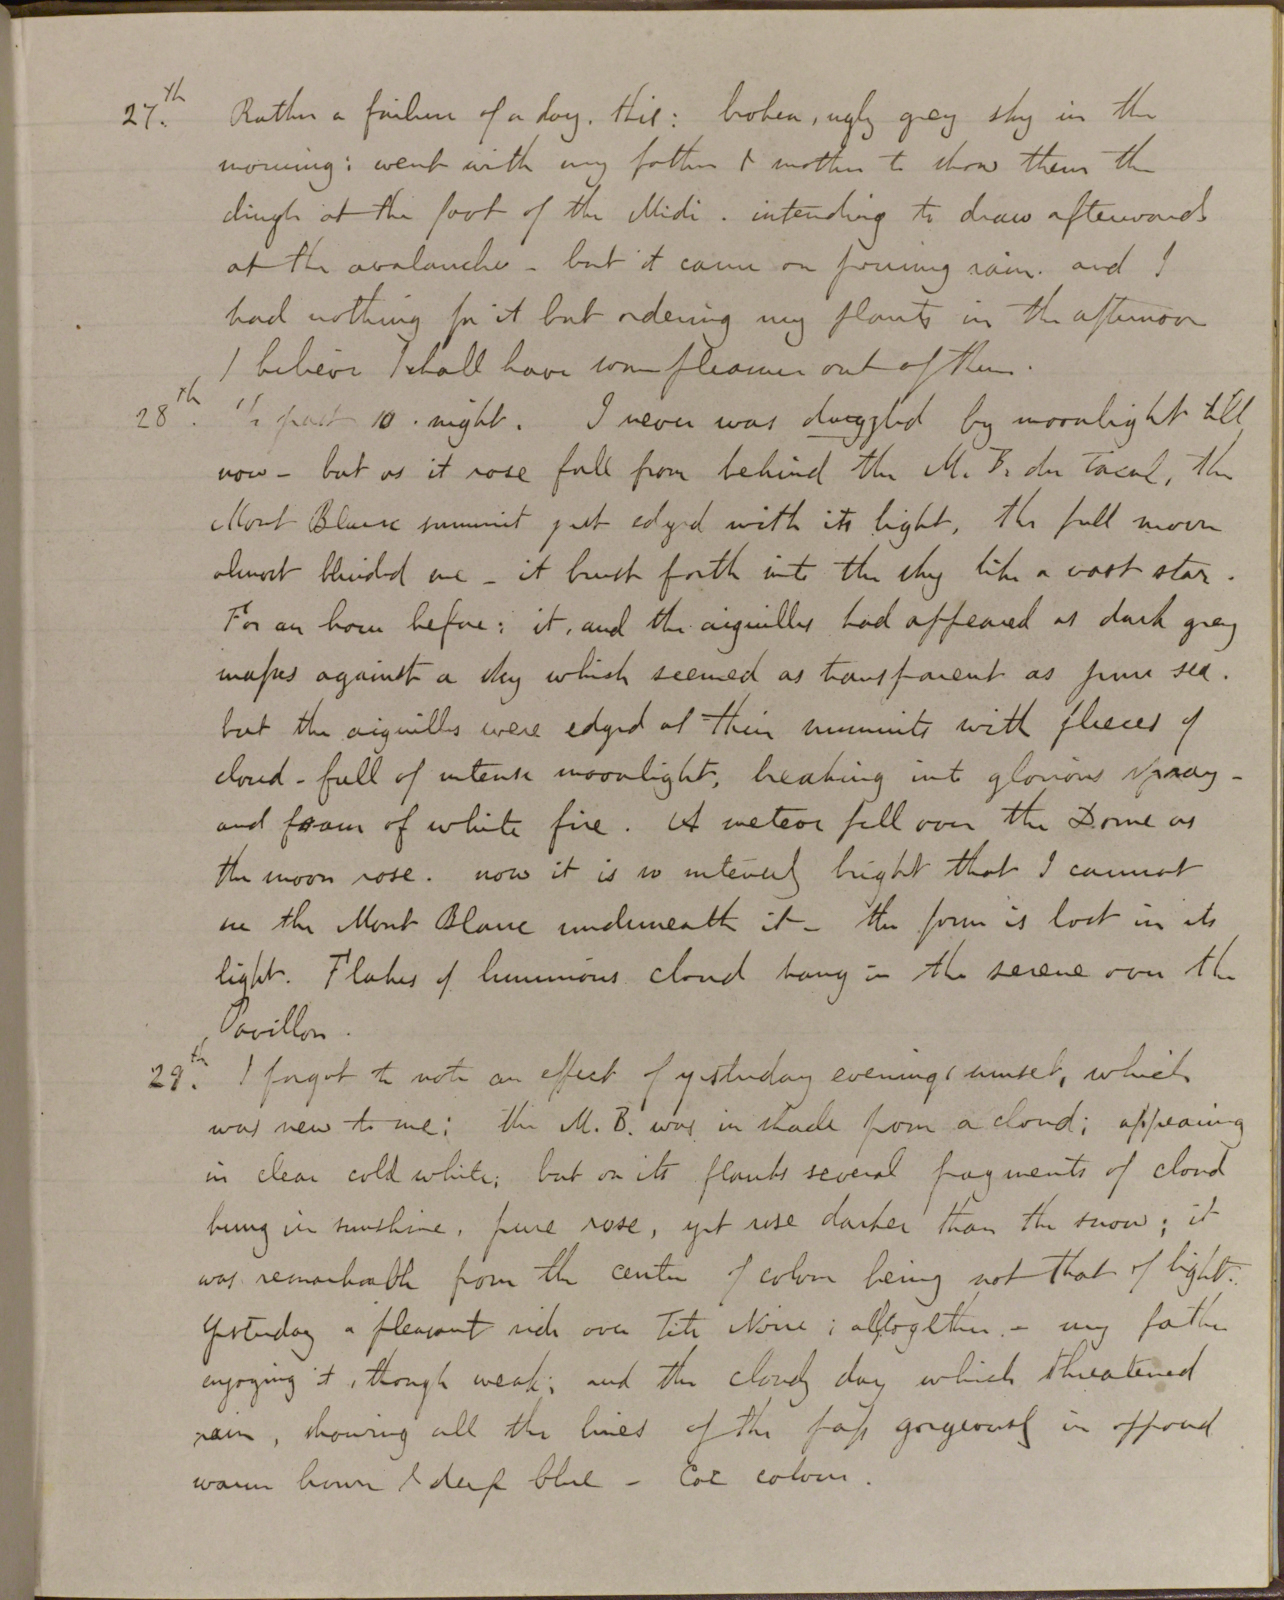 27.th Rather a failure of a day. this: broken, ugly grey sky in the
morning: went with my father & mother to show them the
dingle at the foot of the Midi. intending to draw afterwards
at the avalanche - but it came on pouring rain. and I
had nothing for it but ordering my plants in the afternoon
I believe I shall have some pleasure out of them.
28th. 1/2 past 10. night. I never was dazzled by moonlight till
now - but as it rose full from behind the M. B. du Tacul, the
Mont Blanc summit just edged with its light, the full moon
almost blinded me - it burst forth into the sky like a vast star.
For an hour before: it, and the aiguilles had appeared as dark grey
masses against a sky which seemed as transparent as pure sea.
but the aiguilles were edged at their summits with fleeces of
cloud - full of intense moonlight, breaking into glorious spray -
and foam of white fire. A meteor fell over the Dome as
the moon rose. now it is so intensely bright that I cannot
see the Mont Blanc underneath it - the form is lost in its
light. Flakes of luminous cloud hang in the serene over the
Pavillon.
29.th I forgot to note an effect of yesterday evenings sunset, which
was new to me; the M. B. was in shade from a cloud; appearing
in clear cold white; but on its flanks several fragments of cloud
hung in sunshine, pure rose, yet rose darker than the snow; it
was remarkable from the center of colour being not that of light.
Yesterday a pleasant ride over Tete Noire; altogether. - my father
enjoying it, though weak; and the cloudy day which threatened
rain, showing all the lines of the pass gorgeously in opposed
warm brown & deep blue - colour.